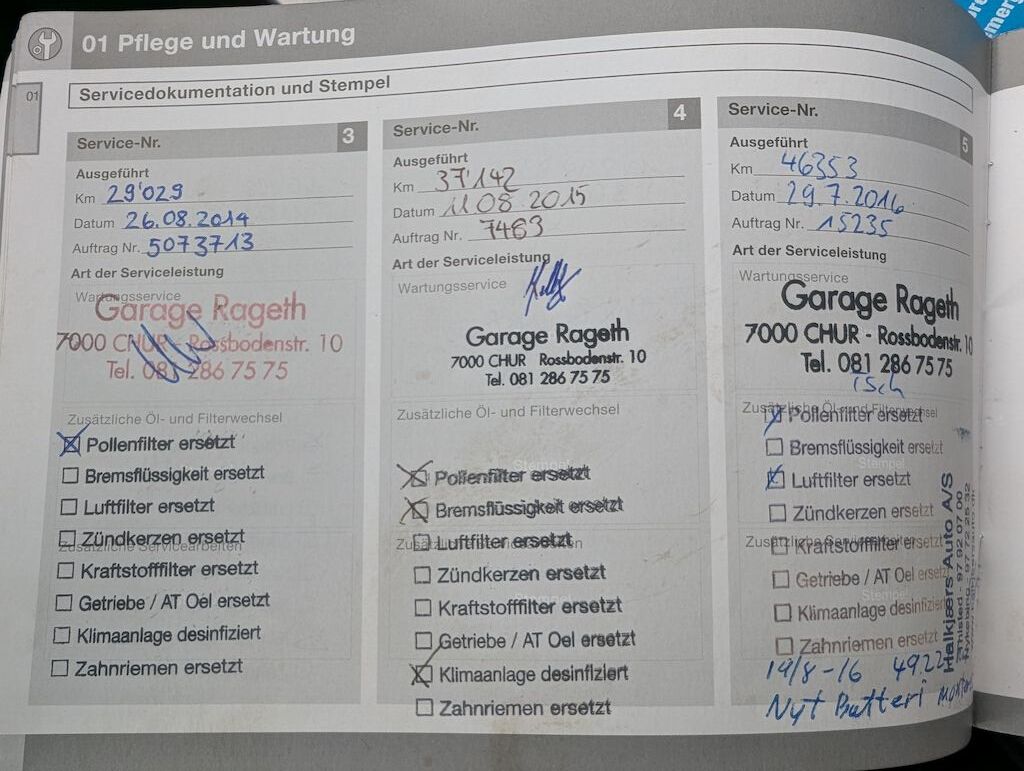 01 Pflege und Wartung
01
Servicedokumentation und Stempel
Service-Nr. 3
Ausgeführt
Km 29'029
Datum 26.08.2014
Auftrag Nr. 5073713
Art der Serviceleistung
Wartungsservice
Garage Rageth
7000 CHUR - Rossbodenstr. 10
Tel. 081 286 75 75
Zusätzliche Öl- und Filterwechsel
Pollenfilter ersetzt
Bremsflüssigkeit ersetzt
Luftfilter ersetzt
Zündkerzen ersetzt
Zusätzliche Servicearbeiten
Kraftstofffilter ersetzt
Getriebe / AT Oel ersetzt
Klimaanlage desinfiziert
Zahnriemen ersetzt
Service-Nr. 4
Ausgeführt
Km 37'142
Datum 11.08.2015
Auftrag Nr. 7463
Art der Serviceleistung
Wartungsservice
Garage Rageth
7000 CHUR Rossbodenstr. 10
Tel. 081 286 75 75
Zusätzliche Öl- und Filterwechsel
Stempel
Pollenfilter ersetzt
Bremsflüssigkeit ersetzt
Luftfilter ersetzt
Zündkerzen ersetzt
Stempel
Kraftstofffilter ersetzt
Getriebe / AT Oel ersetzt
Klimaanlage desinfiziert
Zahnriemen ersetzt
Service-Nr. 5
Ausgeführt
Km 46353
Datum 29.7.2016
Auftrag Nr. 15235
Art der Serviceleistung
Wartungsservice
Garage Rageth
7000 CHUR - Rossbodenstr. 10
Tel. 081 286 75 75
Zusätzliche Öl- und Filterwechsel
Pollenfilter ersetzt
Bremsflüssigkeit ersetzt
Stempel
Luftfilter ersetzt
Zündkerzen ersetzt
Kraftstofffilter ersetzt
Getriebe / AT Oel ersetzt
Stempel
Klimaanlage desinfiziert
Zahnriemen ersetzt
19/8-16 4922
Nyt Batteri
Halkjærs Auto A/S
Thisted - 97 92 07 00
Nykøbing - 97 72 25 32